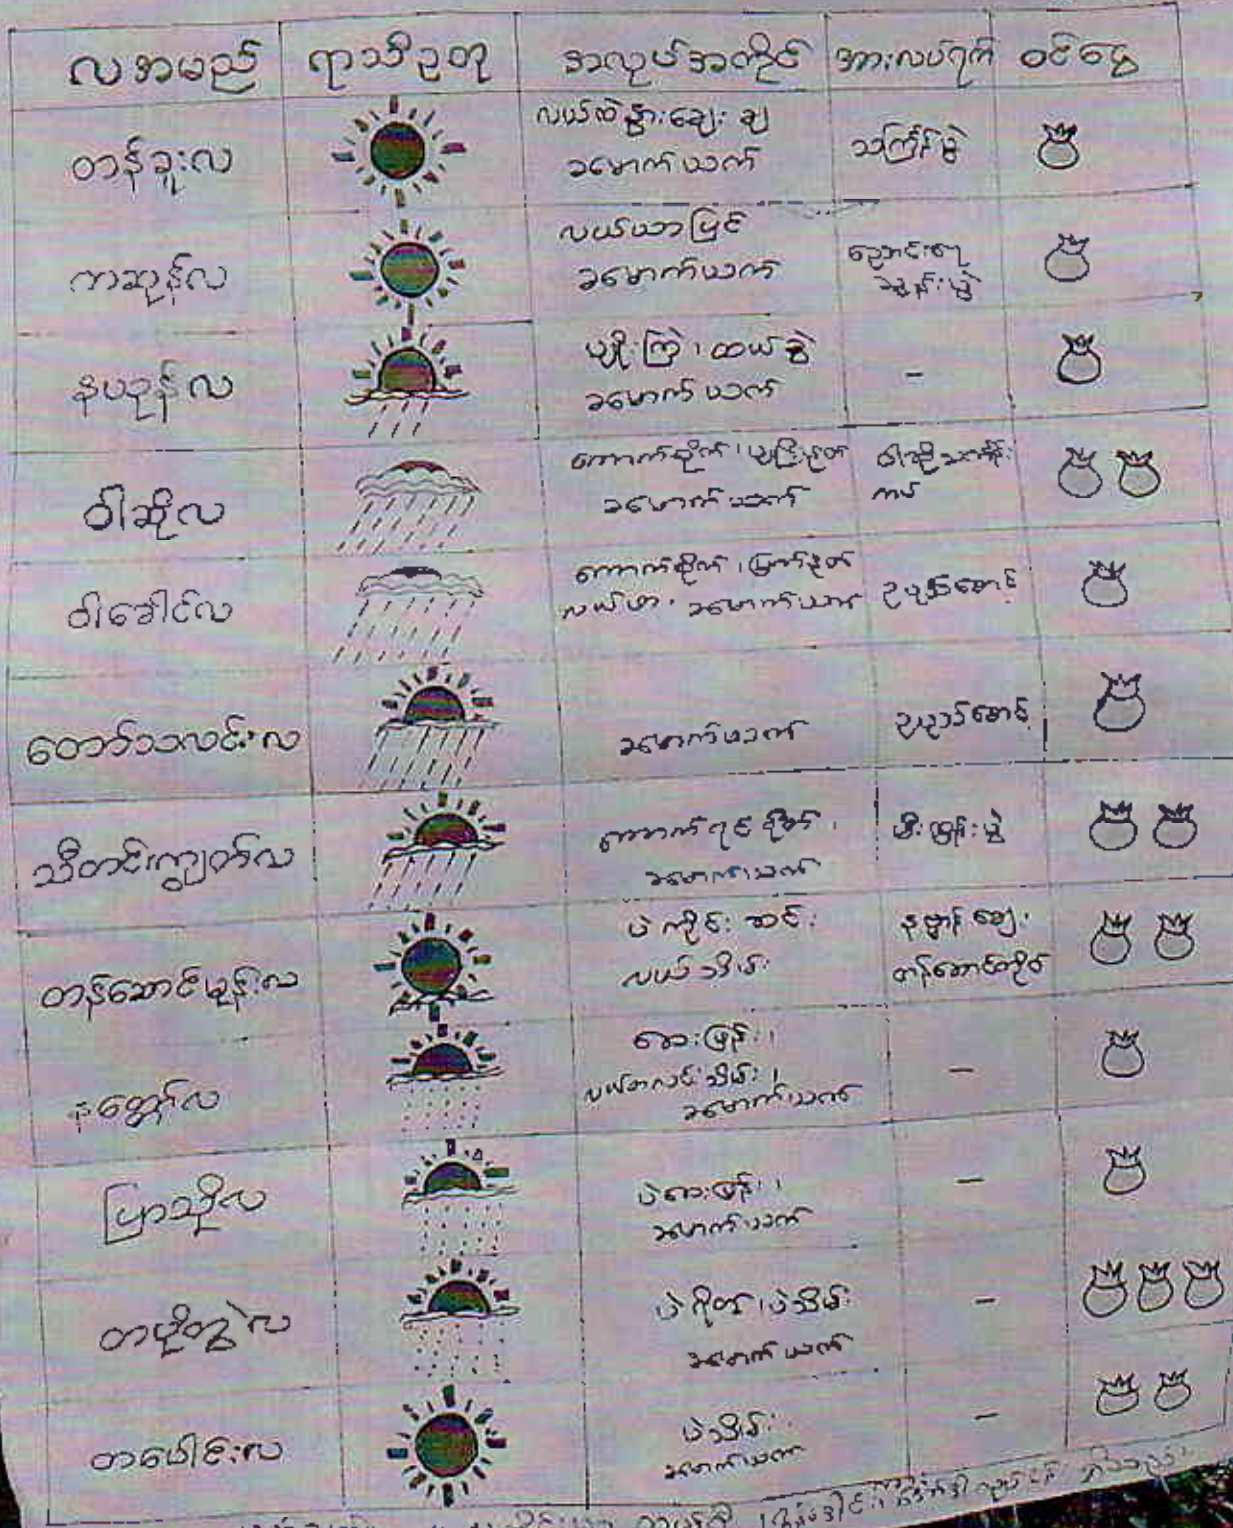 လအမည် ရာသီဥတု အလုပ်အကိုင် အားလပ်ရက် ဝင်ငွေ
တန်ခူးလ
လယ်ထဲနွားချေးချ
ခမောက်ယက်
သင်္ကြန်ပွဲ
ကဆုန်လ
လယ်ယာပြင်
ခမောက်ယက်
ညောင်ရေ
သွန်းပွဲ
နယုန်လ
ပျိုးကြဲ၊ ထယ်
ခမောက်ယက်
-
ဝါဆိုလ
ကောက်စိုက်၊ ပျိုးနုတ်
ခမောက်ယက်
ဝါဆိုသင်္ကန်း
ကပ်
ဝါခေါင်လ
ကောက်စိုက်၊
ခမောက်ယက်
ဥပုသ်စောင့်
တော်သလင်းလ
ခမောက်ယက်
ဥပုသ်စောင့်
သီတင်းကျွတ်လ
ကောက်ရင်ရိတ်၊
ခမောက်ယက်
မီးထွန်းပွဲ
တန်ဆောင်မုန်းလ
လယ်သိမ်း
တန်ဆောင်တိုင်
နတ်တော်လ
ဆေးဖြန်း၊
ခမောက်ယက်
-
ပြာသိုလ
ပဲဆေးဖြန်း၊
ခမောက်ယက်
-
တပို့တွဲလ
ပဲရိတ်၊ ပဲသိမ်း
ခမောက်ယက်
-
တပေါင်းလ
ပဲသိမ်း
ခမောက်ယက်
-